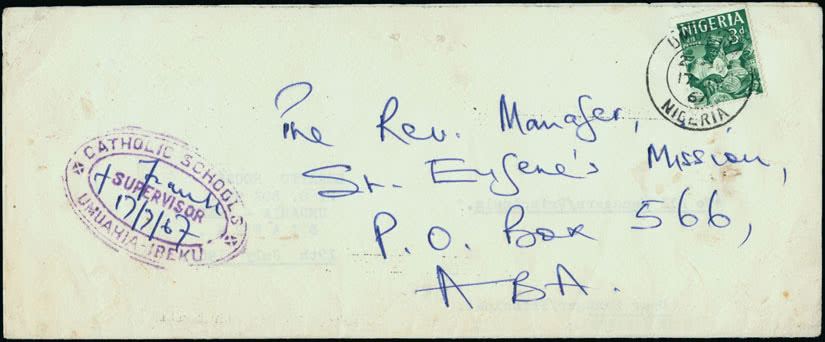 NIGERIA
3d
U
2
17
6
NIGERIA
The Rev. Manager,
St. Eugene's Mission,
P.O. Box 566,
ABA.
CATHOLIC SCHOOLS
SUPERVISOR
17/7/67
UMUAHIA-IBEKU